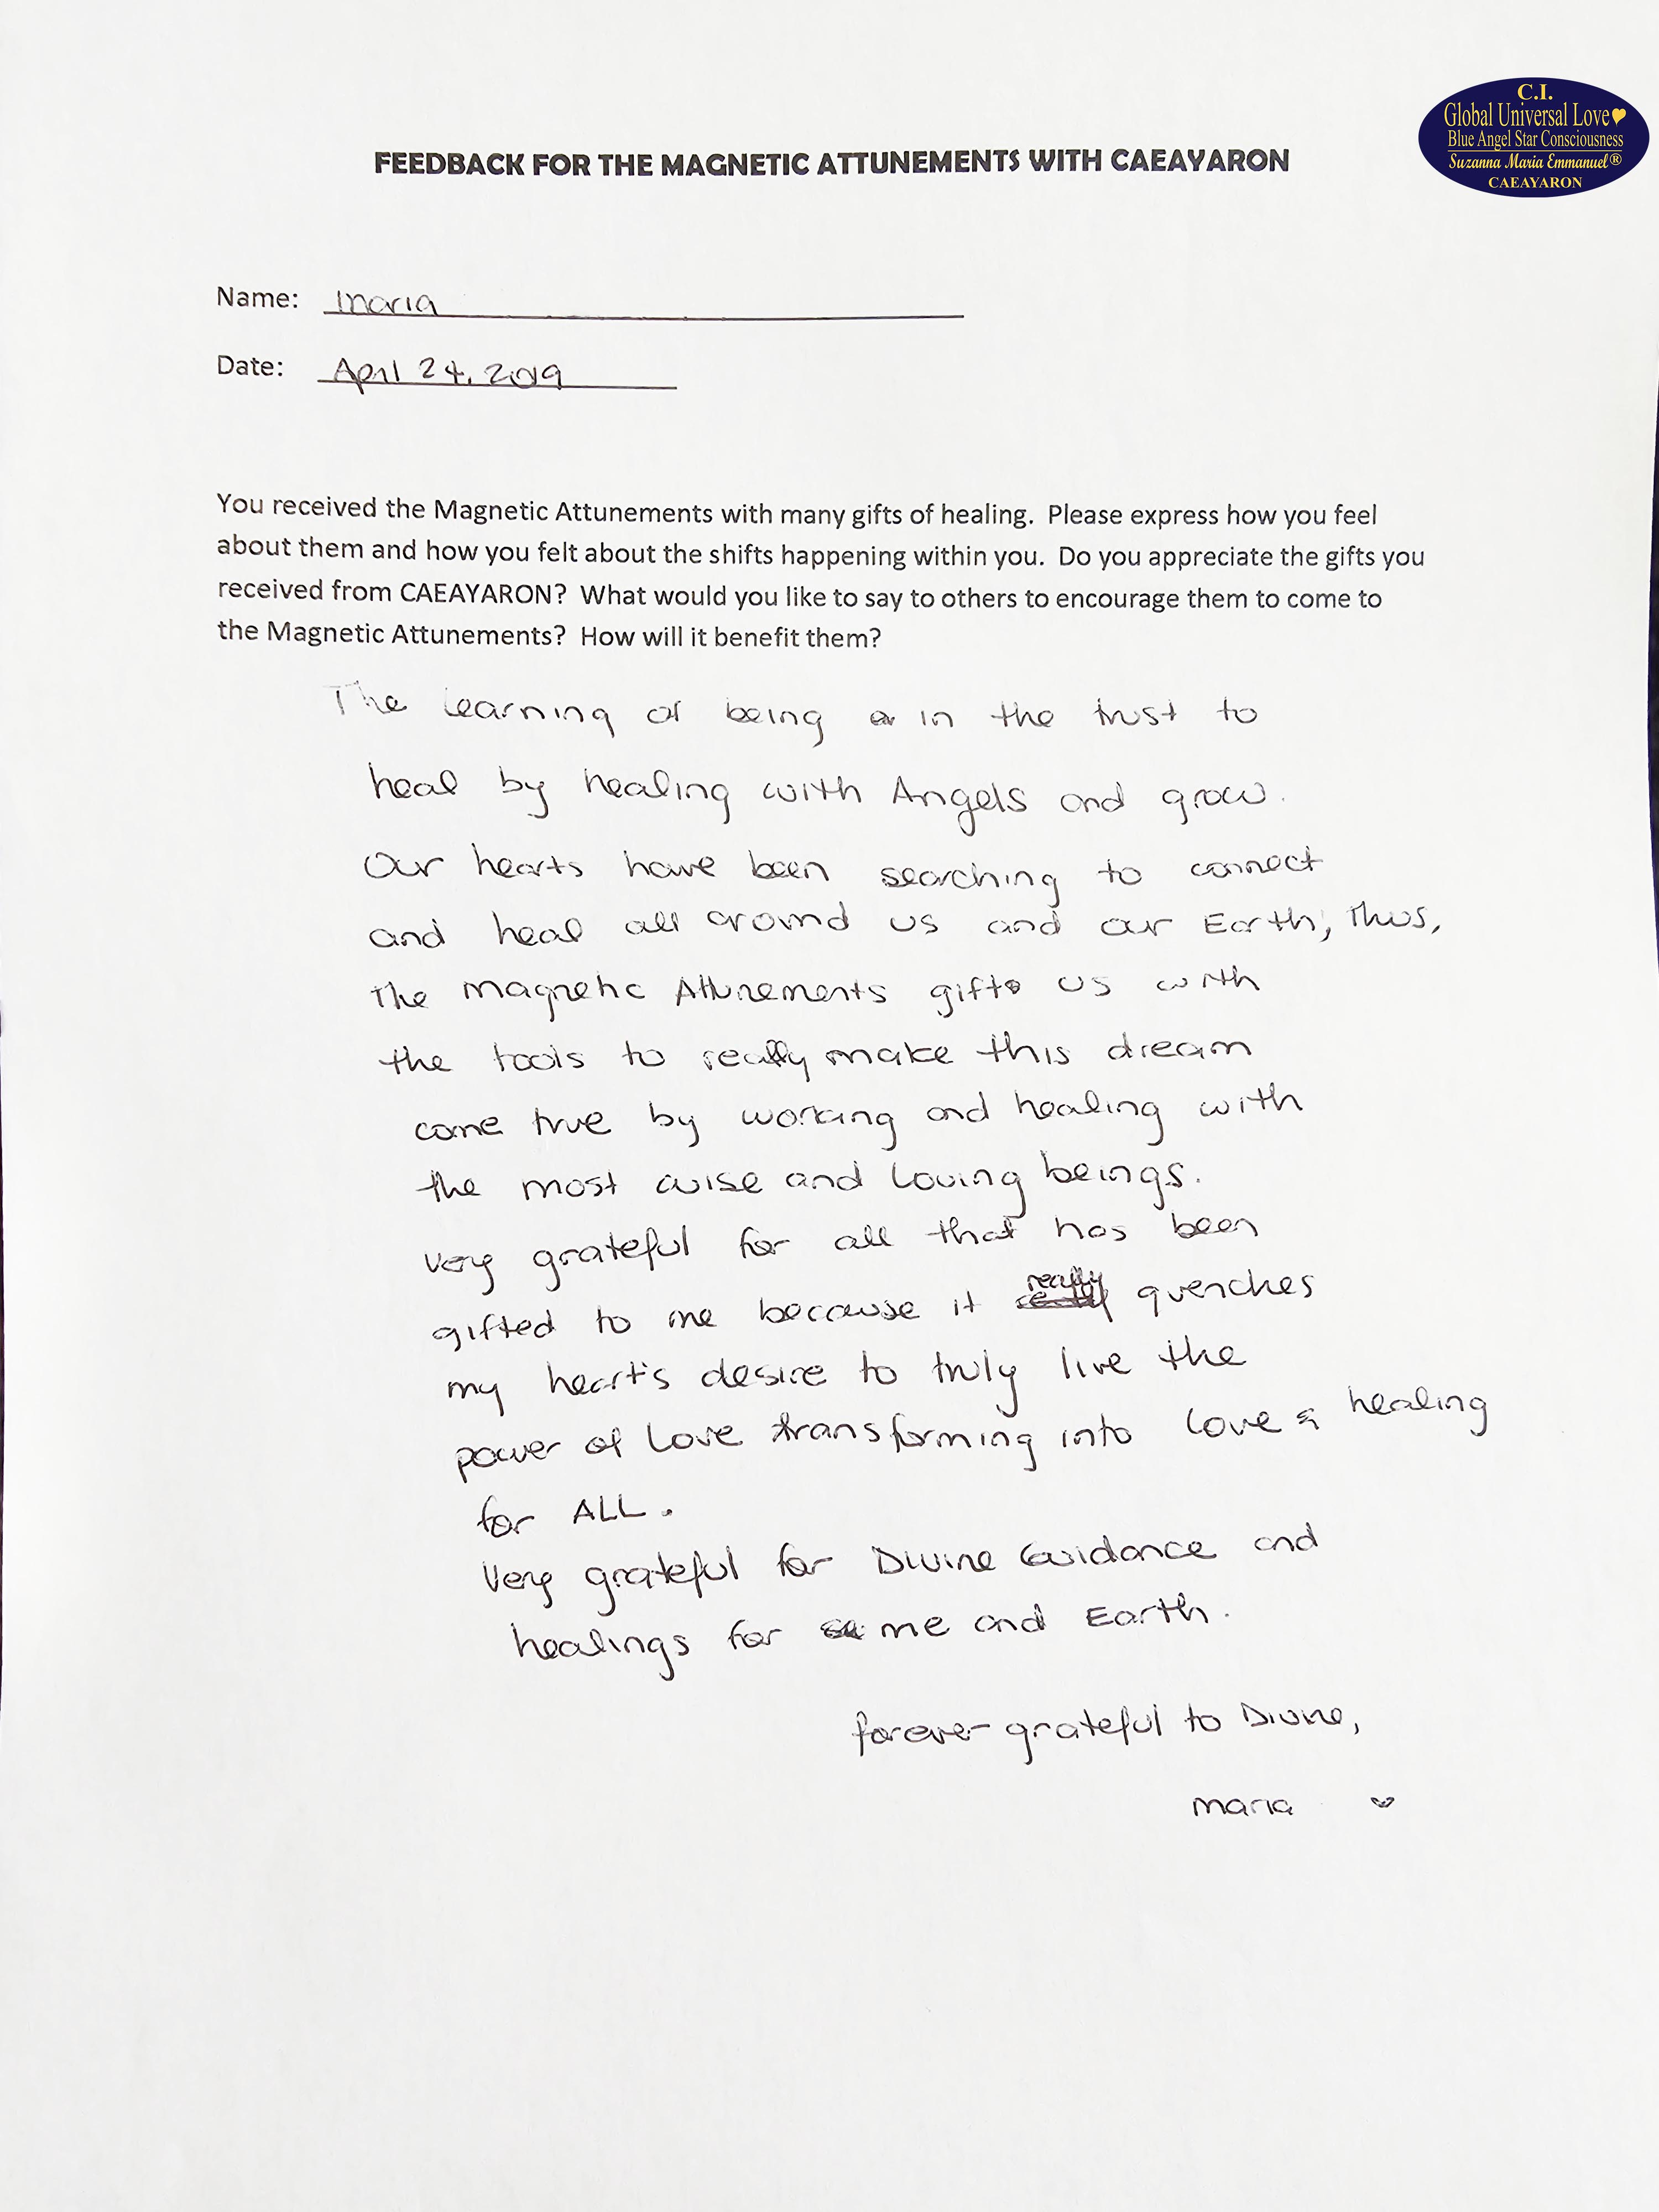 C.I.
Global Universal Love
Blue Angel Star Consciousness
Suzanna Maria Emmanuel®
CAEAYARON
FEEDBACK FOR THE MAGNETIC ATTUNEMENTS WITH CAEAYARON
Name: Maria
Date: April 24, 2019
You received the Magnetic Attunements with many gifts of healing. Please express how you feel
about them and how you felt about the shifts happening within you. Do you appreciate the gifts you
received from CAEAYARON? What would you like to say to others to encourage them to come to
the Magnetic Attunements? How will it benefit them?
The learning of being in the trust to
heal by healing with Angels and grow.
Our hearts have been searching to connect
and heal all around us and our Earth; Thus,
The Magnetic Attunements gifts us with
the tools to really make this dream
come true by working and healing with
the most wise and Loving beings.
Very grateful for all that has been
gifted to me because it really quenches
my heart's desire to truly live the
power of Love transforming into Love & healing
for ALL.
Very grateful for Divine Guidance and
healings for me and Earth.
forever grateful to Divine,
Maria